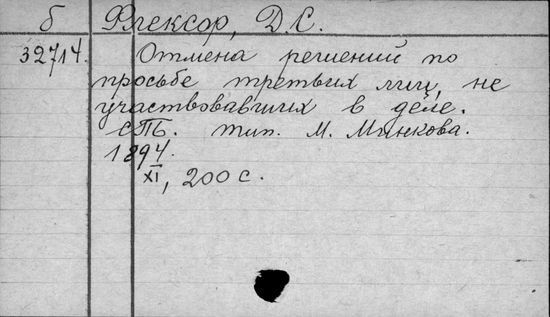 б Флексор, Д.С.
32714. Отмена решений по
просьбе третьих лиц, не
участвовавших в деле.
СПБ. тип. М. Минкова.
1894.
XI, 200 с.